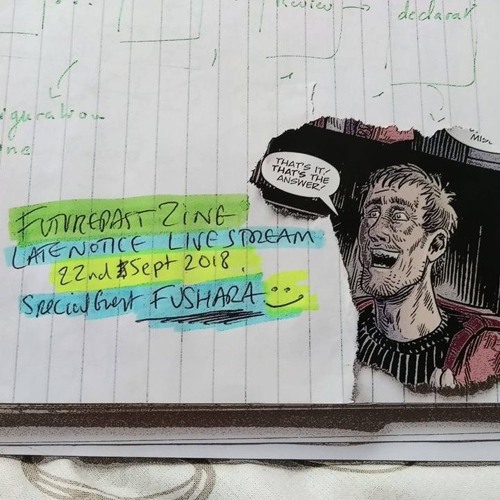 Review
declarat
MIDL
THAT'S IT!
THAT'S THE
ANSWER!
FUTUREPAST ZINE
LATE NOTICE LIVE STREAM
22nd Sept 2018.
Special Guest FUSHARA